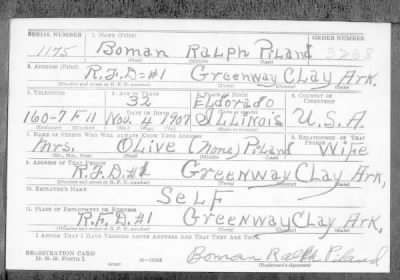 SERIAL NUMBER 1. NAME (Print) ORDER NUMBER
1175 Boman Ralph Piland 3268
(First) (Middle) (Last)
2. ADDRESS (Print)
R.F.D.#1 Greenway Clay Ark.
(Number and street or R. F. D. number) (Town) (County) (State)
3. TELEPHONE 4. AGE IN YEARS 5. PLACE OF BIRTH 6. COUNTRY OF CITIZENSHIP
32 Eldorado
DATE OF BIRTH
160-7F11 Nov. 4 1907 Illinois U.S.A.
(Exchange) (Number) (Mo.) (Day) (Yr.) (State or country)
7. NAME OF PERSON WHO WILL ALWAYS KNOW YOUR ADDRESS 8. RELATIONSHIP OF THAT PERSON
Mrs. Olive (None) Piland Wife
(Mr., Mrs., Miss) (First) (Middle) (Last)
9. ADDRESS OF THAT PERSON
R.F.D.#1 Greenway Clay Ark,
(Number and street or R. F. D. number) (Town) (County) (State)
10. EMPLOYER'S NAME
Self
11. PLACE OF EMPLOYMENT OR BUSINESS
R.F.D.#1 Greenway Clay Ark.
(Number and street or R. F. D. number) (Town) (County) (State)
I AFFIRM THAT I HAVE VERIFIED ABOVE ANSWERS AND THAT THEY ARE TRUE.
REGISTRATION CARD
D. S. S. FORM 1 Boman Ralph Piland
(Registrant's signature)